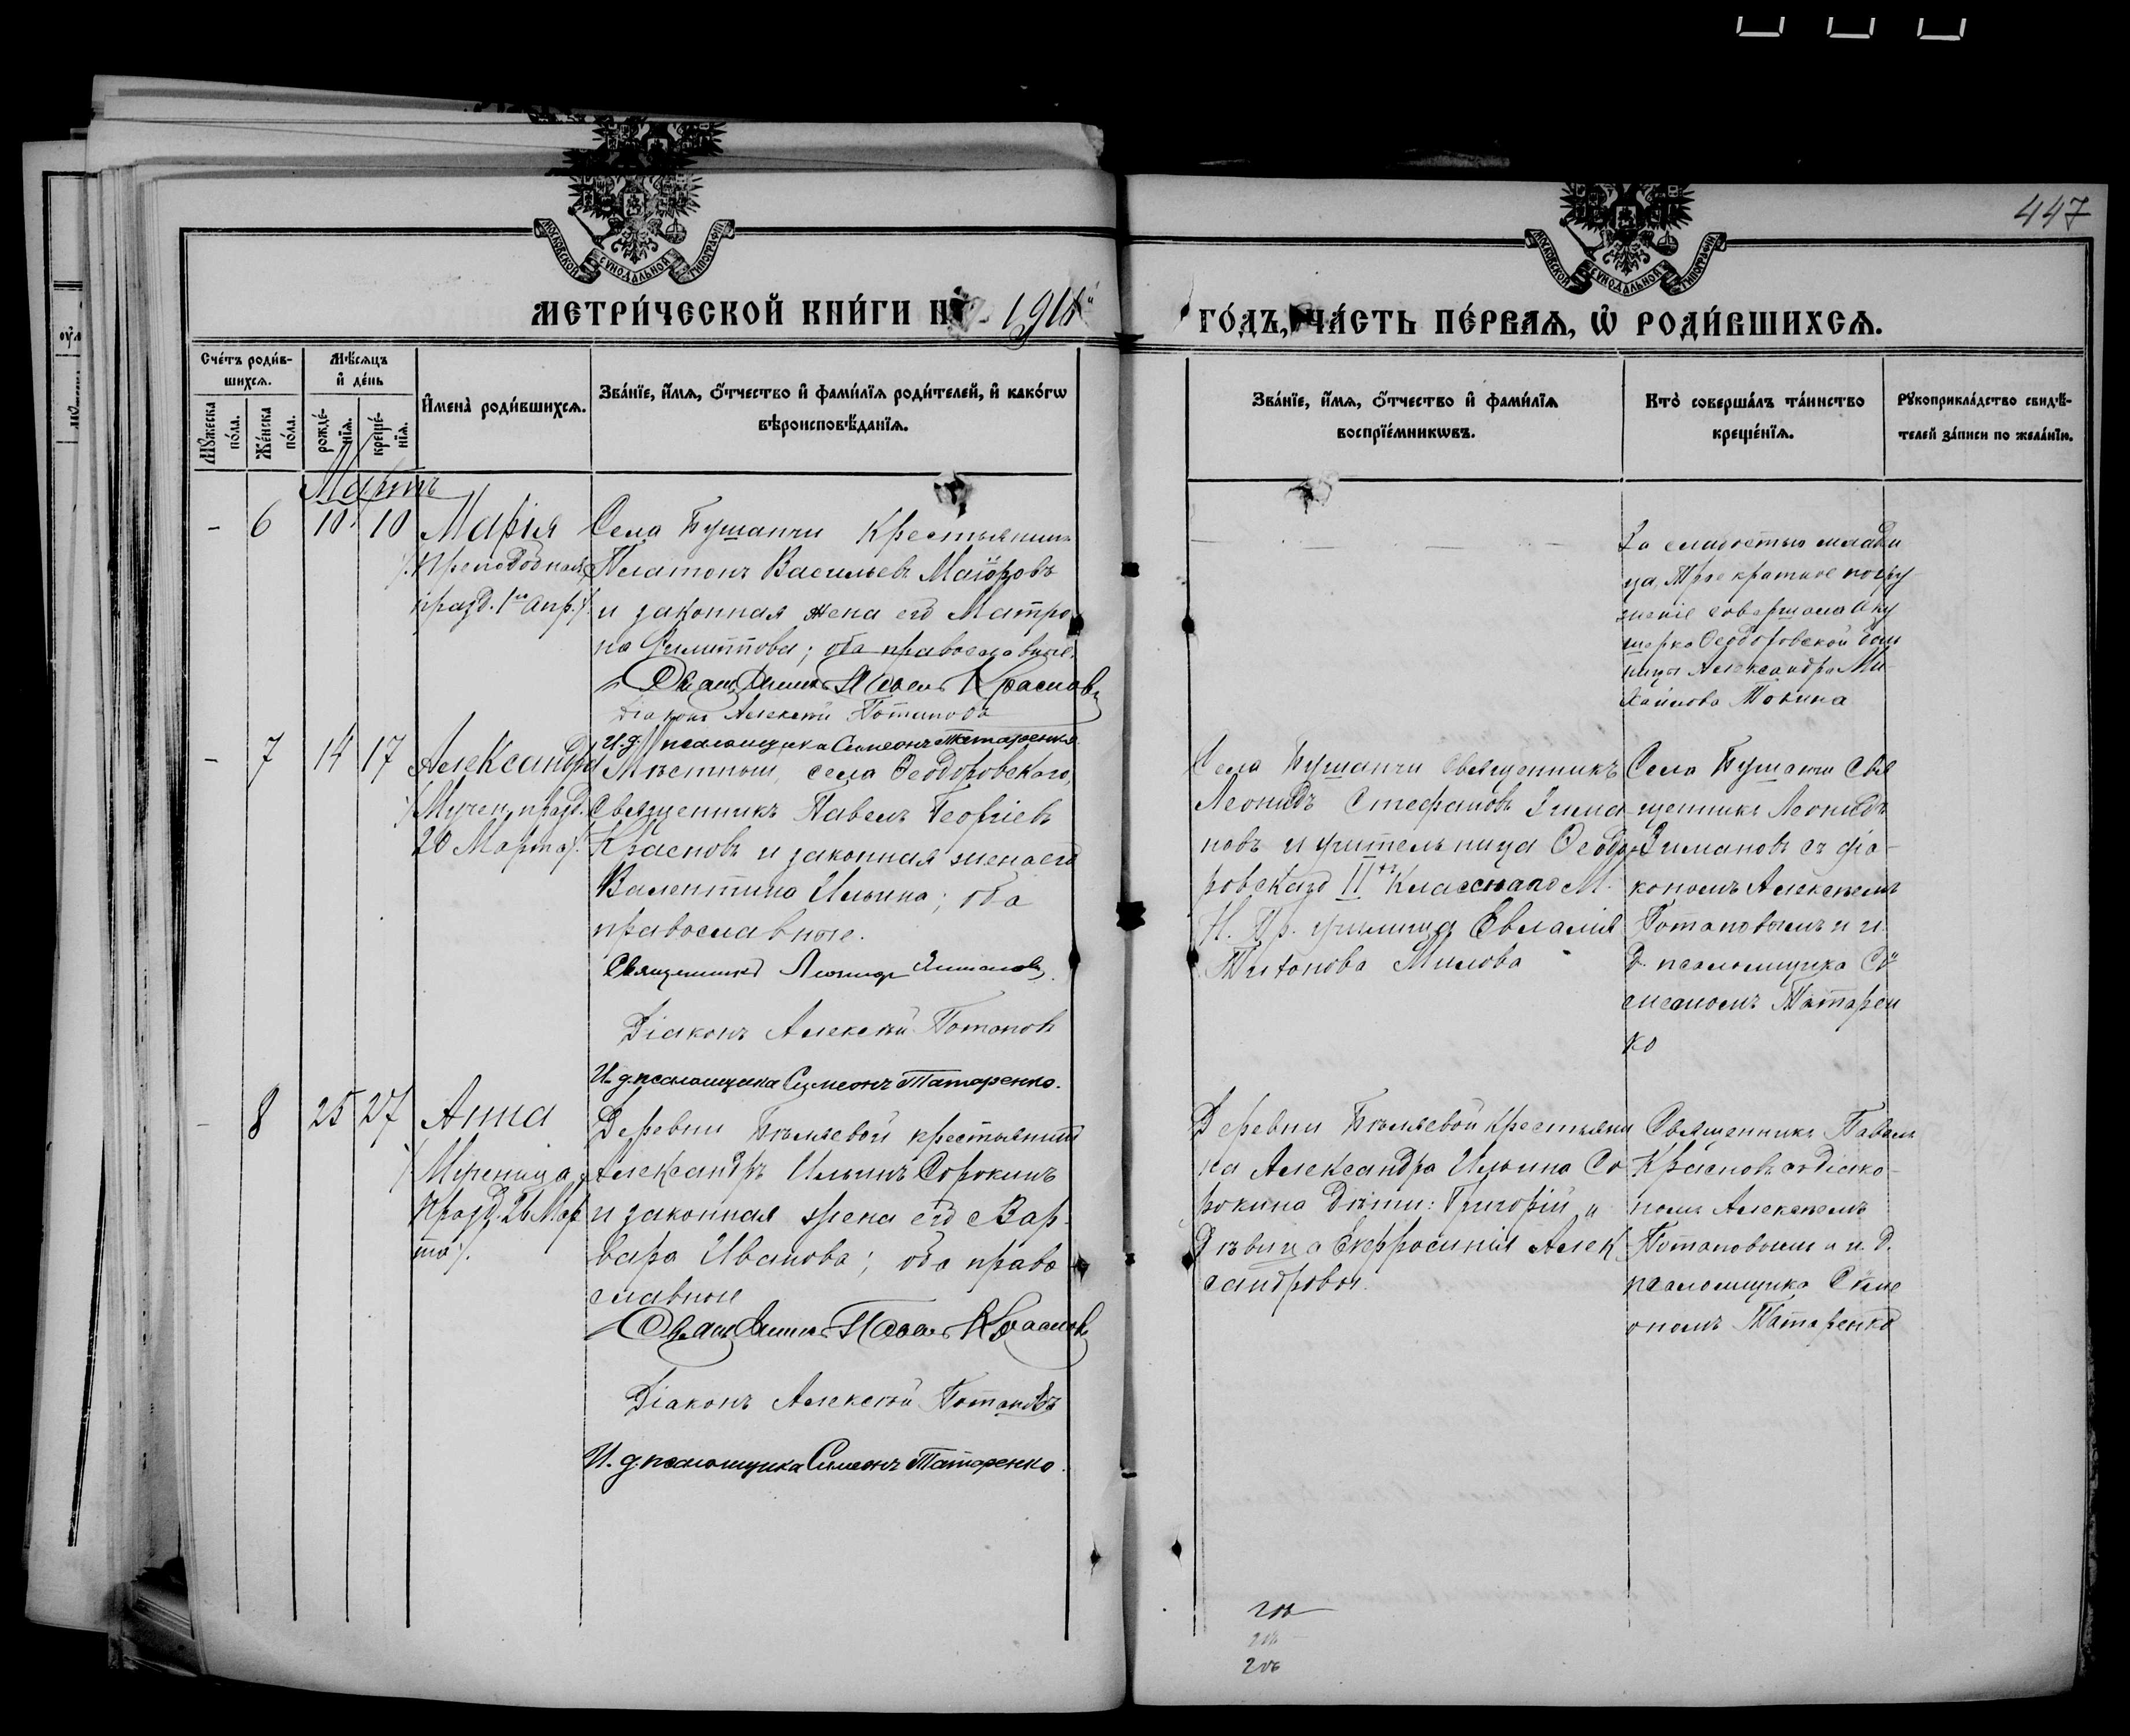 447
МОСКОВСКОЙ СѴНОДАЛЬНОЙ ТИПОГРАФІИ
МОСКОВСКОЙ СѴНОДАЛЬНОЙ ТИПОГРАФІИ
МЕТРИ́ЧЕСКОЙ КНИ́ГИ
ГО́ДЪ, ЧА́СТЬ ПЕ́РВАѦ, Ѡ РОДИ́ВШИХСѦ.
Сче́тъ роди́в-
шихсѧ.
Мꙋжеска по́ла.
Же́нска по́ла.
Мѣ́сѧцъ
и҆ де́нь
рожде́-
нїѧ.
креще́-
нїѧ.
И҆мена̀ роди́вшихсѧ.
Зва́нїе, и҆́мѧ, ѻ҆́тчество и҆ фами́лїѧ роди́телей, и҆ како́гѡ
вѣроисповѣ́данїѧ.
Зва́нїе, и҆́мѧ, ѻ҆́тчество и҆ фами́лїѧ
воспрїе́мникѡвъ.
Кто̀ соверша́лъ та́инство
креще́нїѧ.
Рꙋкоприкла́дство свидѣ́-
телей за́писи по жела́нїю.
Мартъ
- 6 10 10 Марія
/: Преподобная,
празд. 1го Апр. :/
Села Бушанчи Крестьянинъ
Платонъ Васильевъ Маіоровъ
и законная жена его Матро-
на Филиппова; оба православные.
Священникъ Павелъ Красновъ
Діаконъ Алексѣй Потаповъ
И. д. псаломщика Симеонъ Татаренко.
За слабостью младен
ца, трое кратное погру
женіе совершала аку
шерка Ѳеодоровской боль
ницы Александра Ми-
хайлова Токина
- 7 14 17 Александра
/: Мучен. празд.
20 Марта :/
Мѣстный, села Ѳеодоровскаго,
Священникъ Павелъ Георгіевъ
Красновъ и законная жена его
Валентина Ильина; оба
православные.
Священникъ Леонидъ Зимановъ.
Діаконъ Алексѣй Потаповъ
И. д. псаломщика Симеонъ Татаренко.
Села Бушанчи Священникъ
Леонидъ Стефановъ Зима
новъ и учительница Ѳеодо
ровскаго II хъ Класснаго М.
Н. Пр. училища Евлалія
Тихонова Милова
Села Бушанчи Свя
щенникъ Леонидъ
Зимановъ съ діа-
кономъ Алексѣемъ
Потаповымъ и и.
д. псаломщика Си
меономъ Татарен
ко
- 8 25 27 Анна
/: Мученица,
празд. 26 Мар
та :/.
Деревни Бѣляевой крестьянинъ
Александръ Ильинъ Сорокинъ
и законная жена его Вар-
вара Иванова; оба право
славные
Священникъ Павелъ Красновъ
Діаконъ Алексѣй Потаповъ
И. д. псаломщика Симеонъ Татаренко.
Деревни Бѣляевой Крестьяни
на Александра Ильина Со
рокина дѣти: Григорій и
дѣвица Евфросинія Алек
сандровы.
Священникъ Павелъ
Красновъ съ діако-
номъ Алексѣемъ
Потаповымъ и и. д.
псаломщика Симе
ономъ Татаренко
206